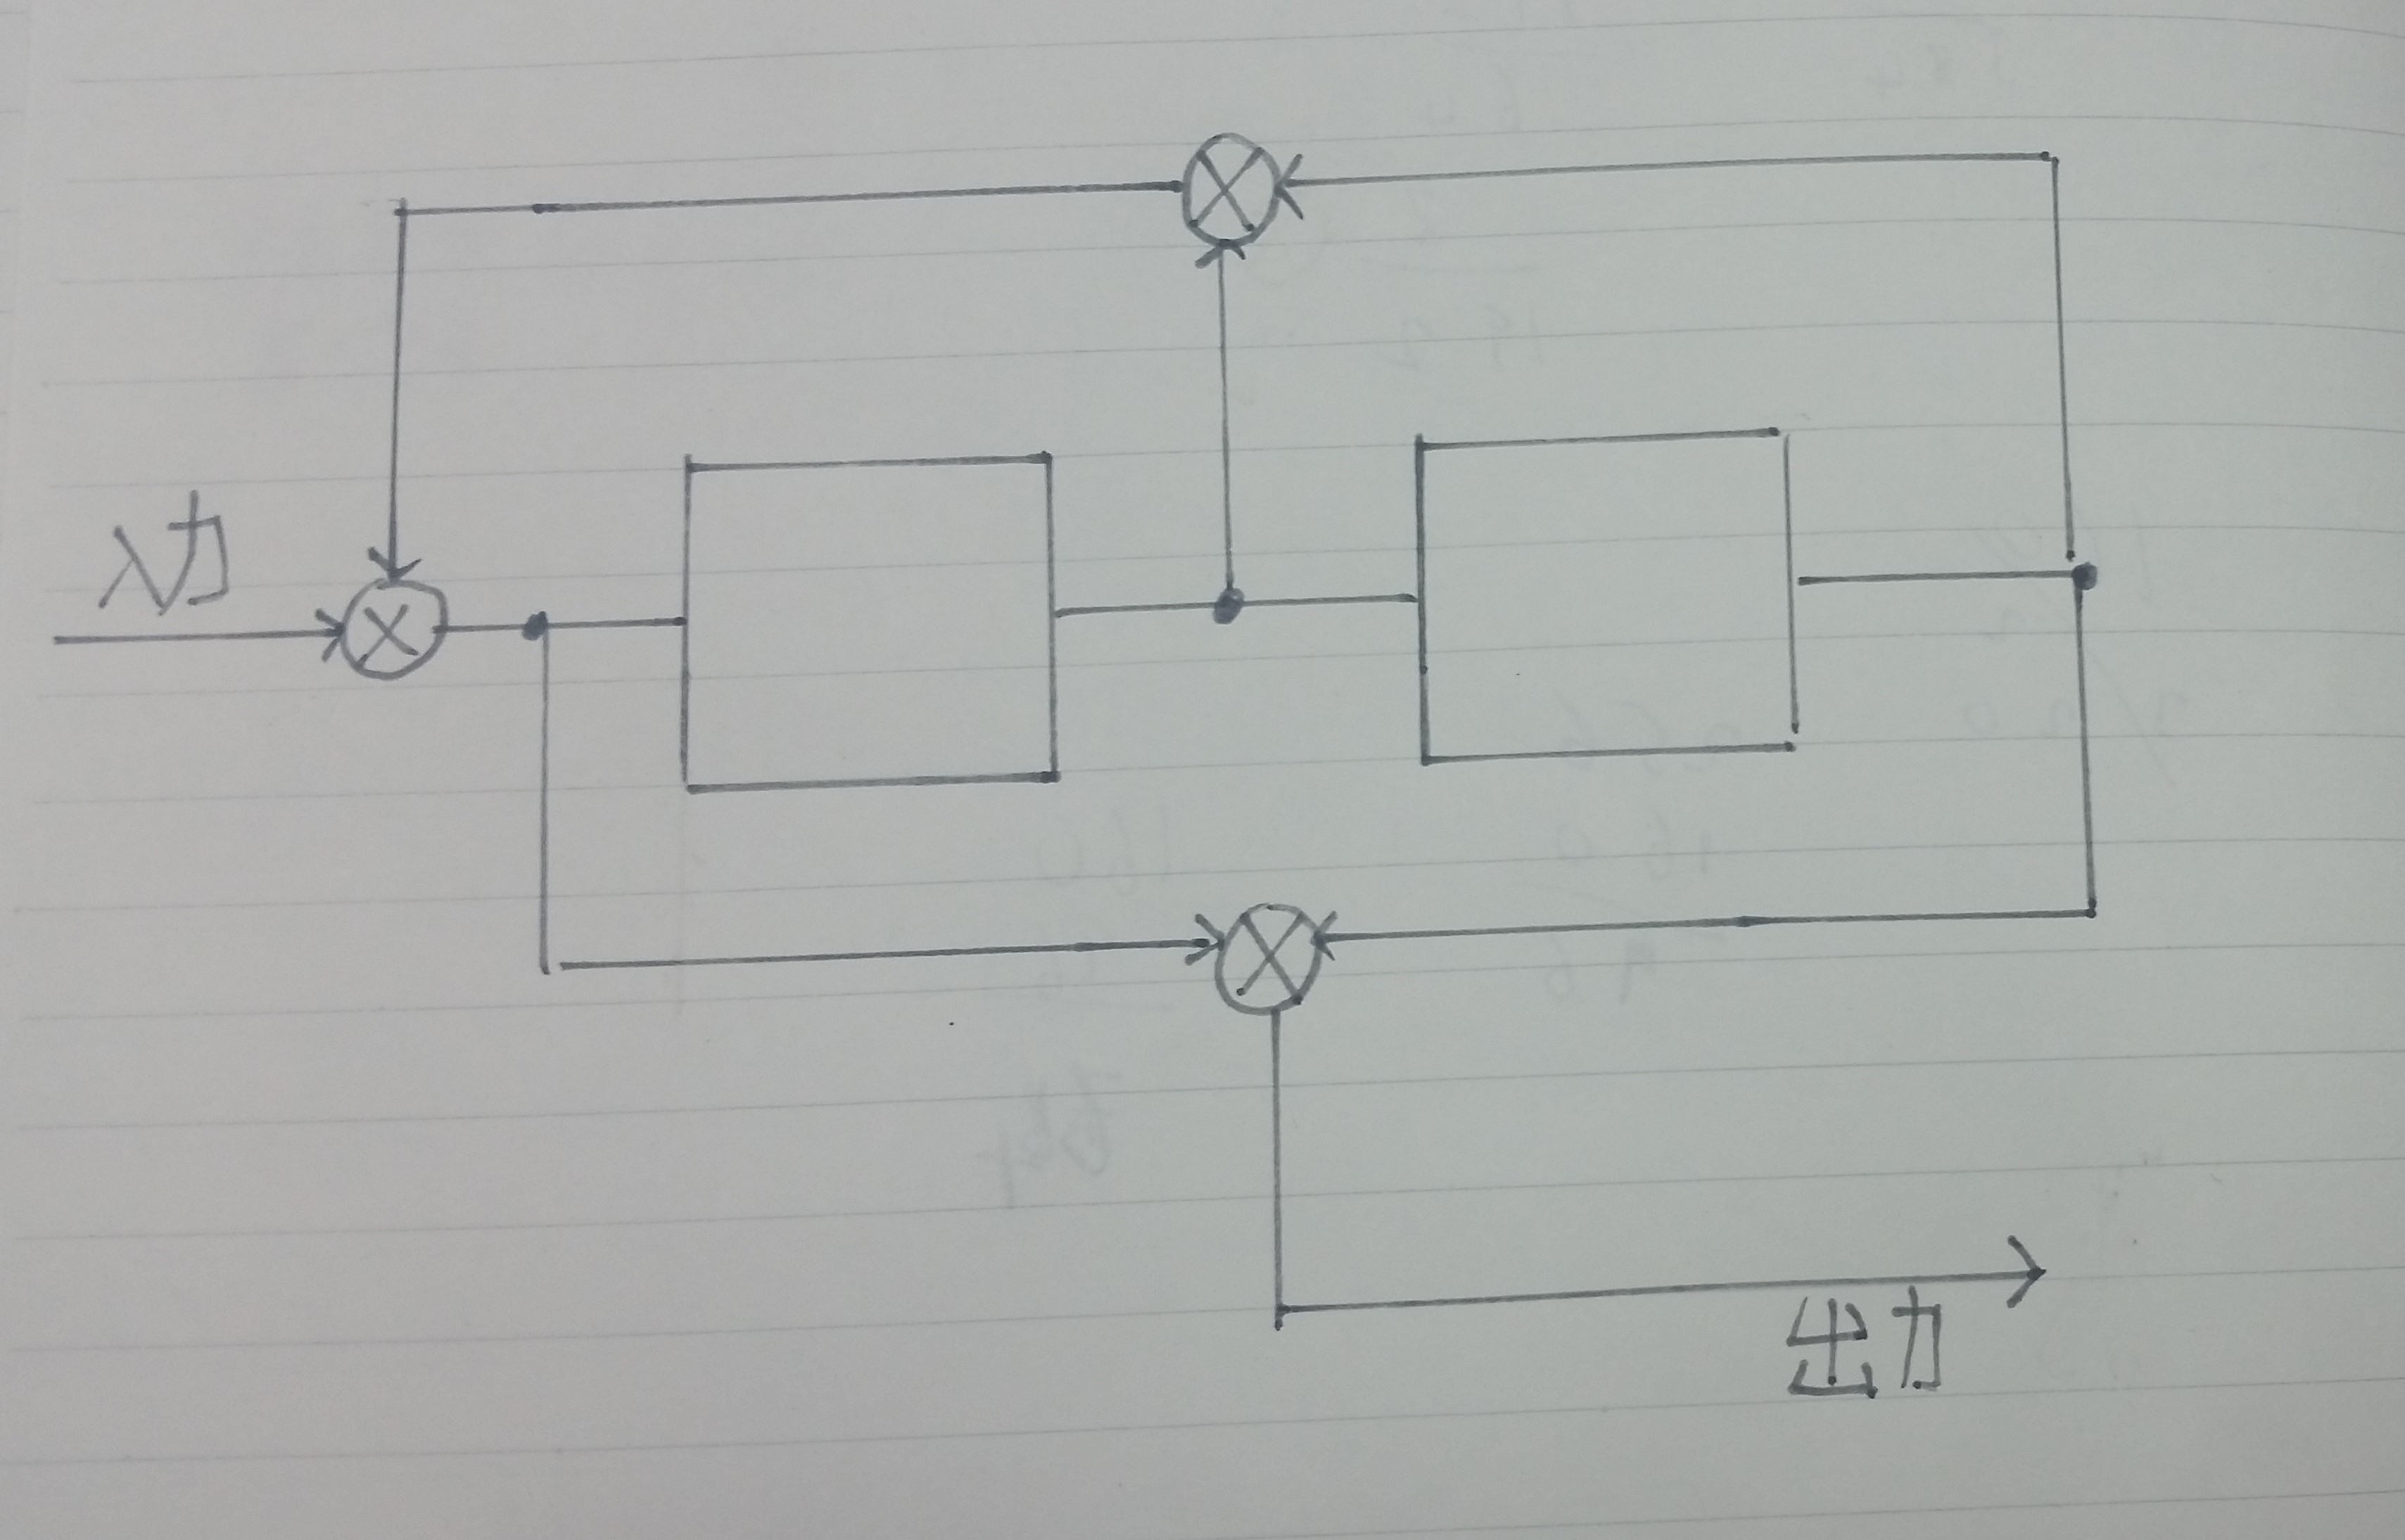 入力
出力